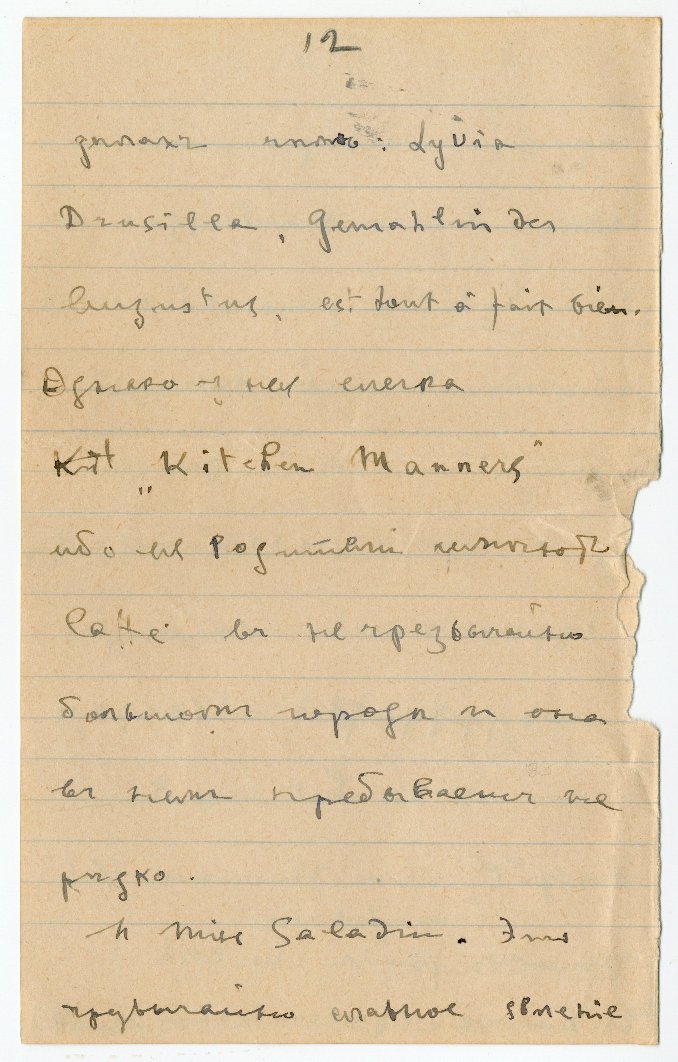 12
Lyvia
Drusilla, Gemahlin des
Augustus, est tout à fait bien.
Однако у нея слегка
"Kitchen Manners"
ибо ея родители
Café въ не чрезвычайно
большомъ городѣ и она
въ немъ пребываетъ не
рѣдко.
И Miss Saladin. Это
чрезвычайно славное явленіе